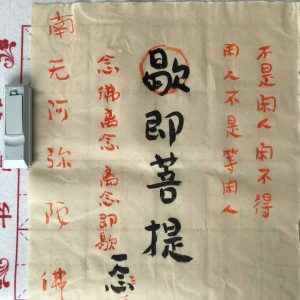 不是闲人闲不得
闲人不是等闲人
歇即菩提
念佛离念 离念即歇
一念
南无阿弥陀佛